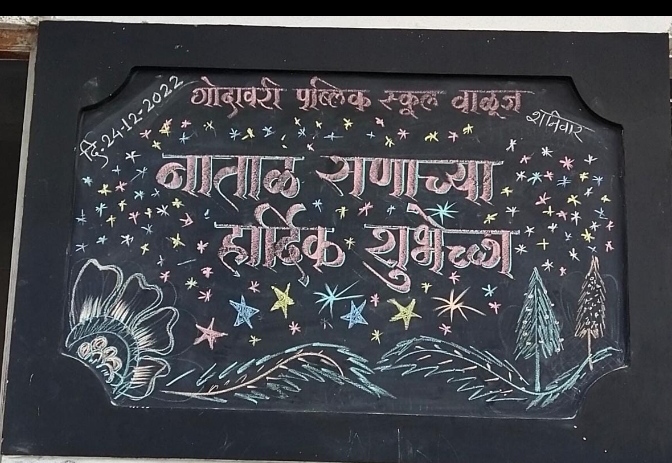 दि. 24-12-2022
गोदावरी पब्लिक स्कूल वाळूज
शनिवार
नाताळ सणाच्या
हार्दिक शुभेच्छा